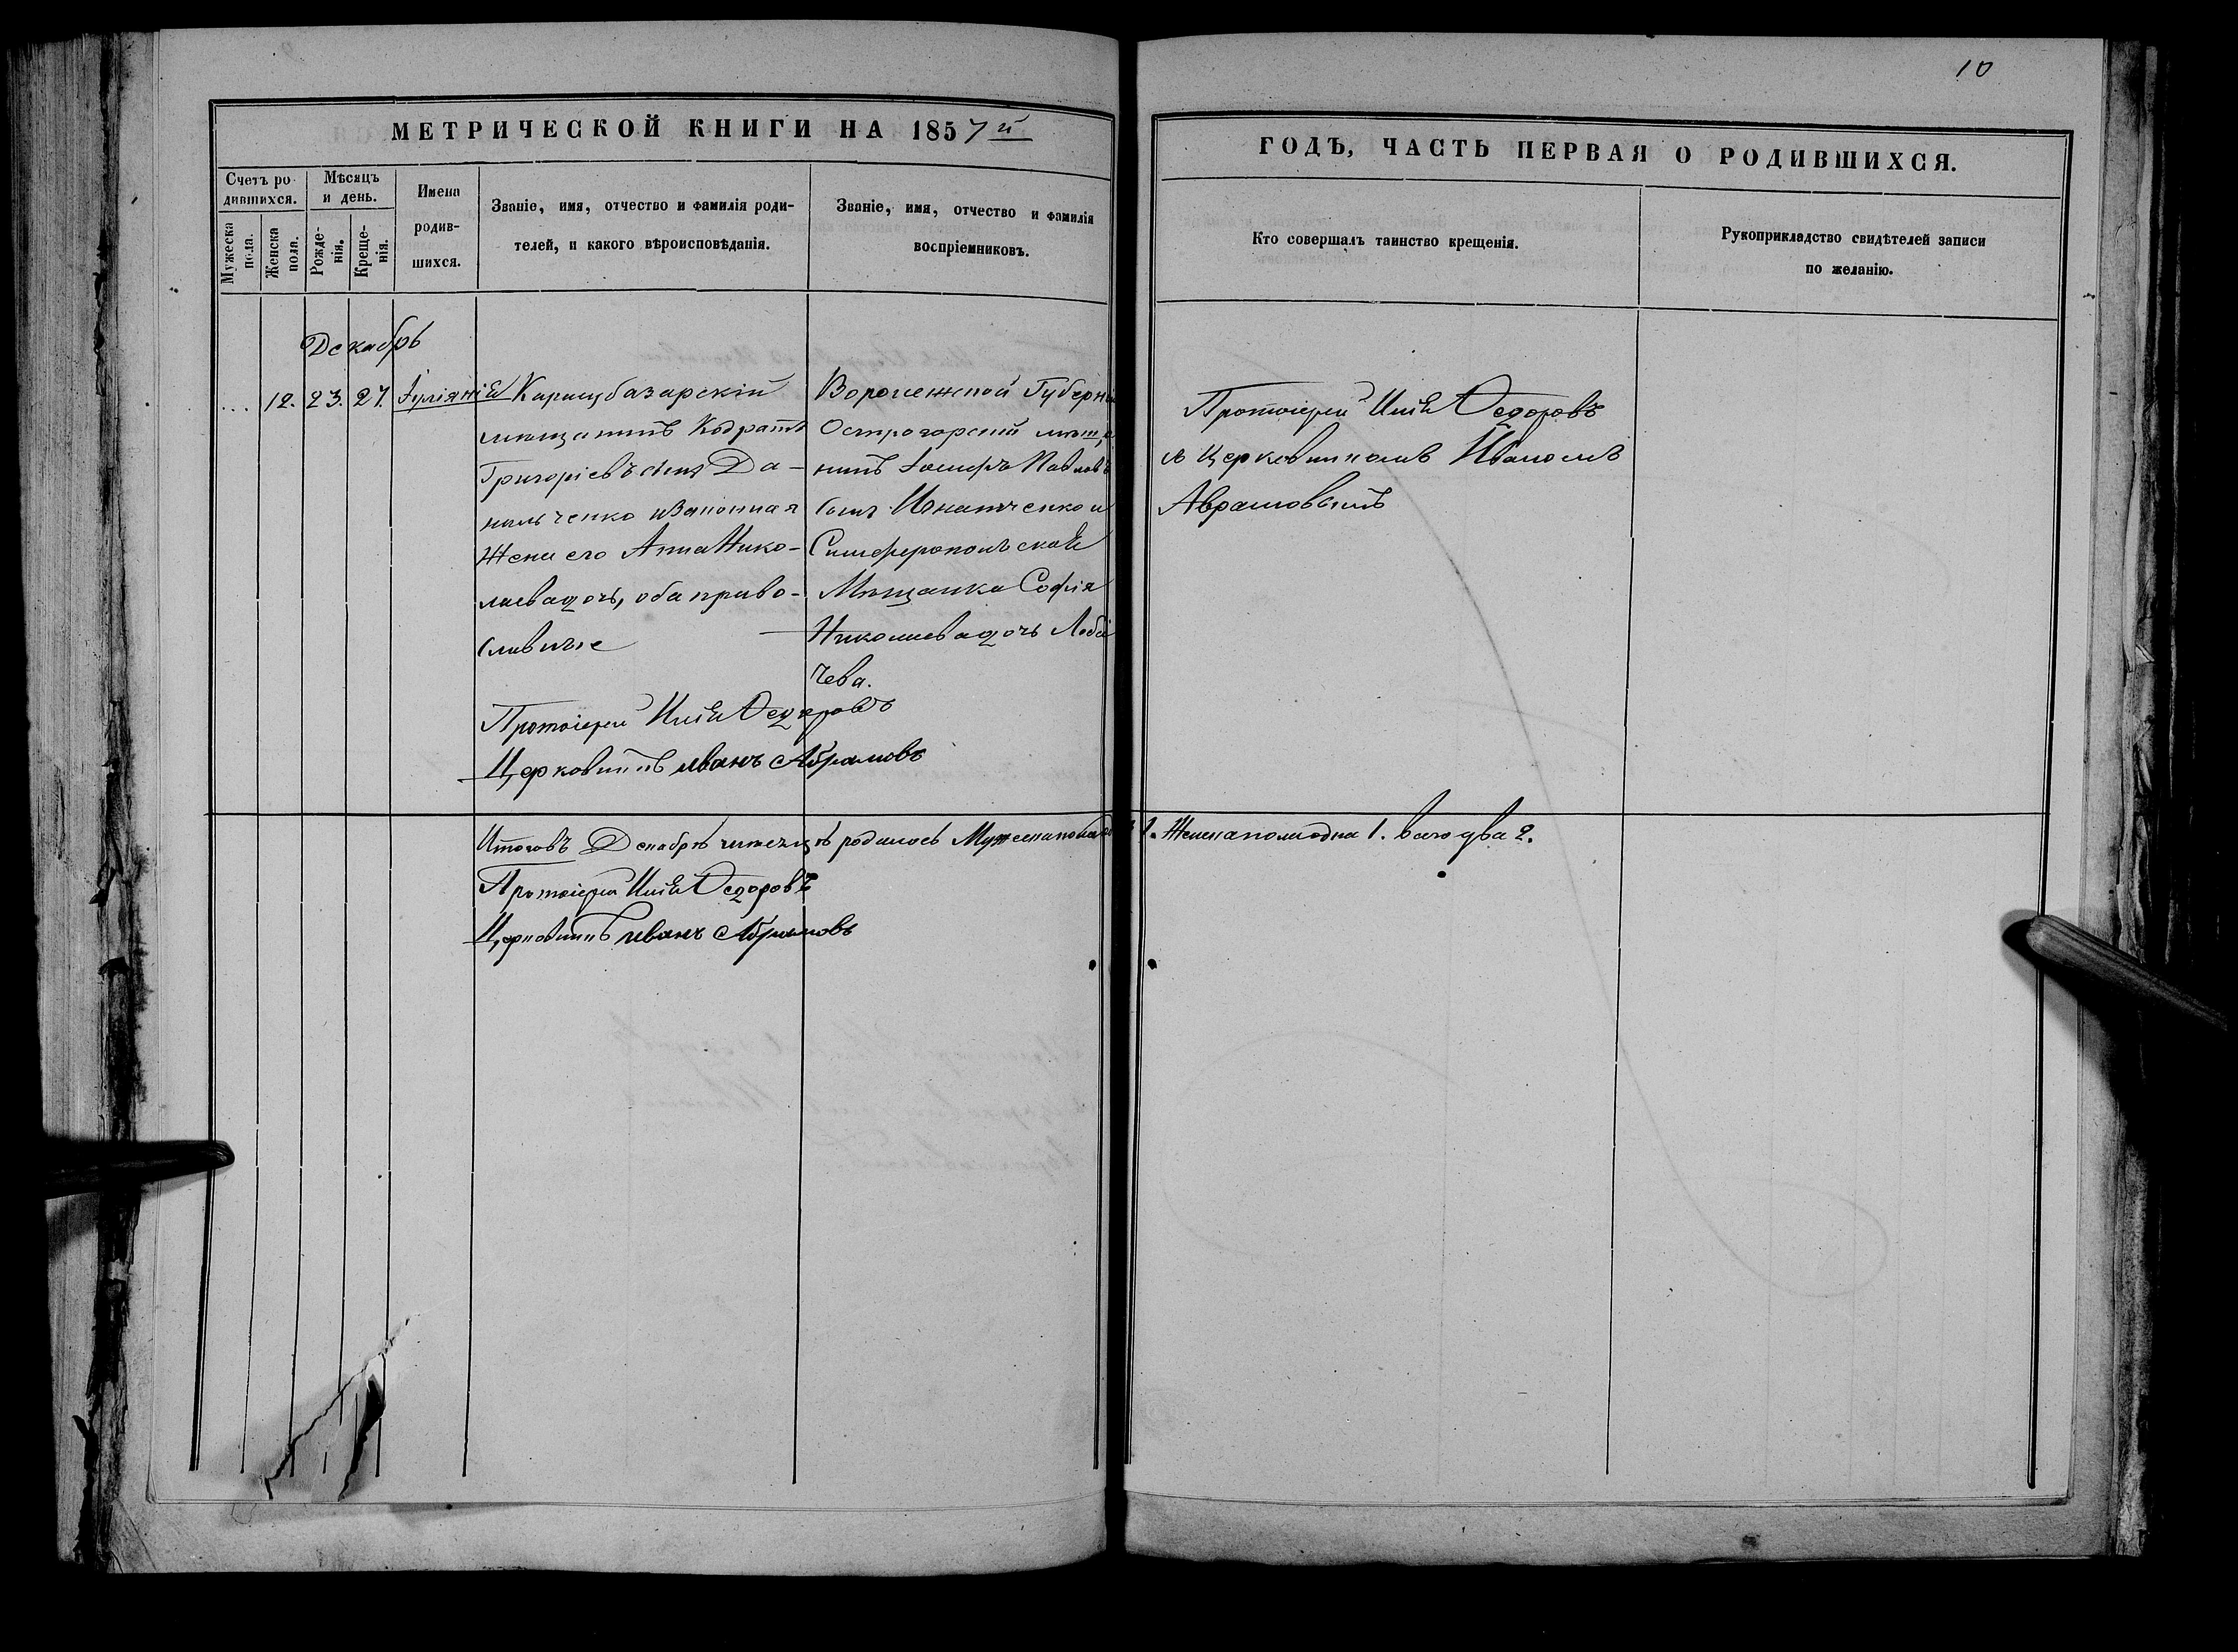 10
МЕТРИЧЕСКОЙ КНИГИ НА 1857й
ГОДЪ, ЧАСТЬ ПЕРВАЯ О РОДИВШИХСЯ.
Счетъ ро-
дившихся.
Мужеска пола.
Женска пола.
Мѣсяцъ
и день.
Рожде-
нія.
Креще-
нія.
Имена
родив-
шихся.
Званіе, имя, отчество и фамилія роди-
телей, и какого вѣроисповѣданія.
Званіе, имя, отчество и фамилія
воспріемниковъ.
Кто совершалъ таинство крещенія.
Рукоприкладство свидѣтелей записи
по желанію.
Декабрь
... 12. 23. 27. Іуліянія
Карасубазарскій
мещанинъ Кодратъ
Григоріевъ сынъ Да-
нильченко изаконная
Жена его Анна Нико-
лаева дочь, оба право-
славные
Воронежской Губерніи
Острогорскій мѣща
нинъ Іосифъ Павловъ
сынъ Игнатченко и
Симферопольская
Мѣщанка Софія
Николаева дочь
чева.
Протоіерей Илія Ѳедоровъ
Церковникъ иванъ Абрамовъ
Протоіерей Илія Ѳедоровъ
съ церковникомъ Иваномъ
Аврамовымъ
Итого въ Декабрѣ месяцѣ родилось Мужеска пола 1. Женска пола одна 1. всего два 2.
Протоіерей Илія Ѳедоровъ
Церковникъ иванъ Абрамовъ